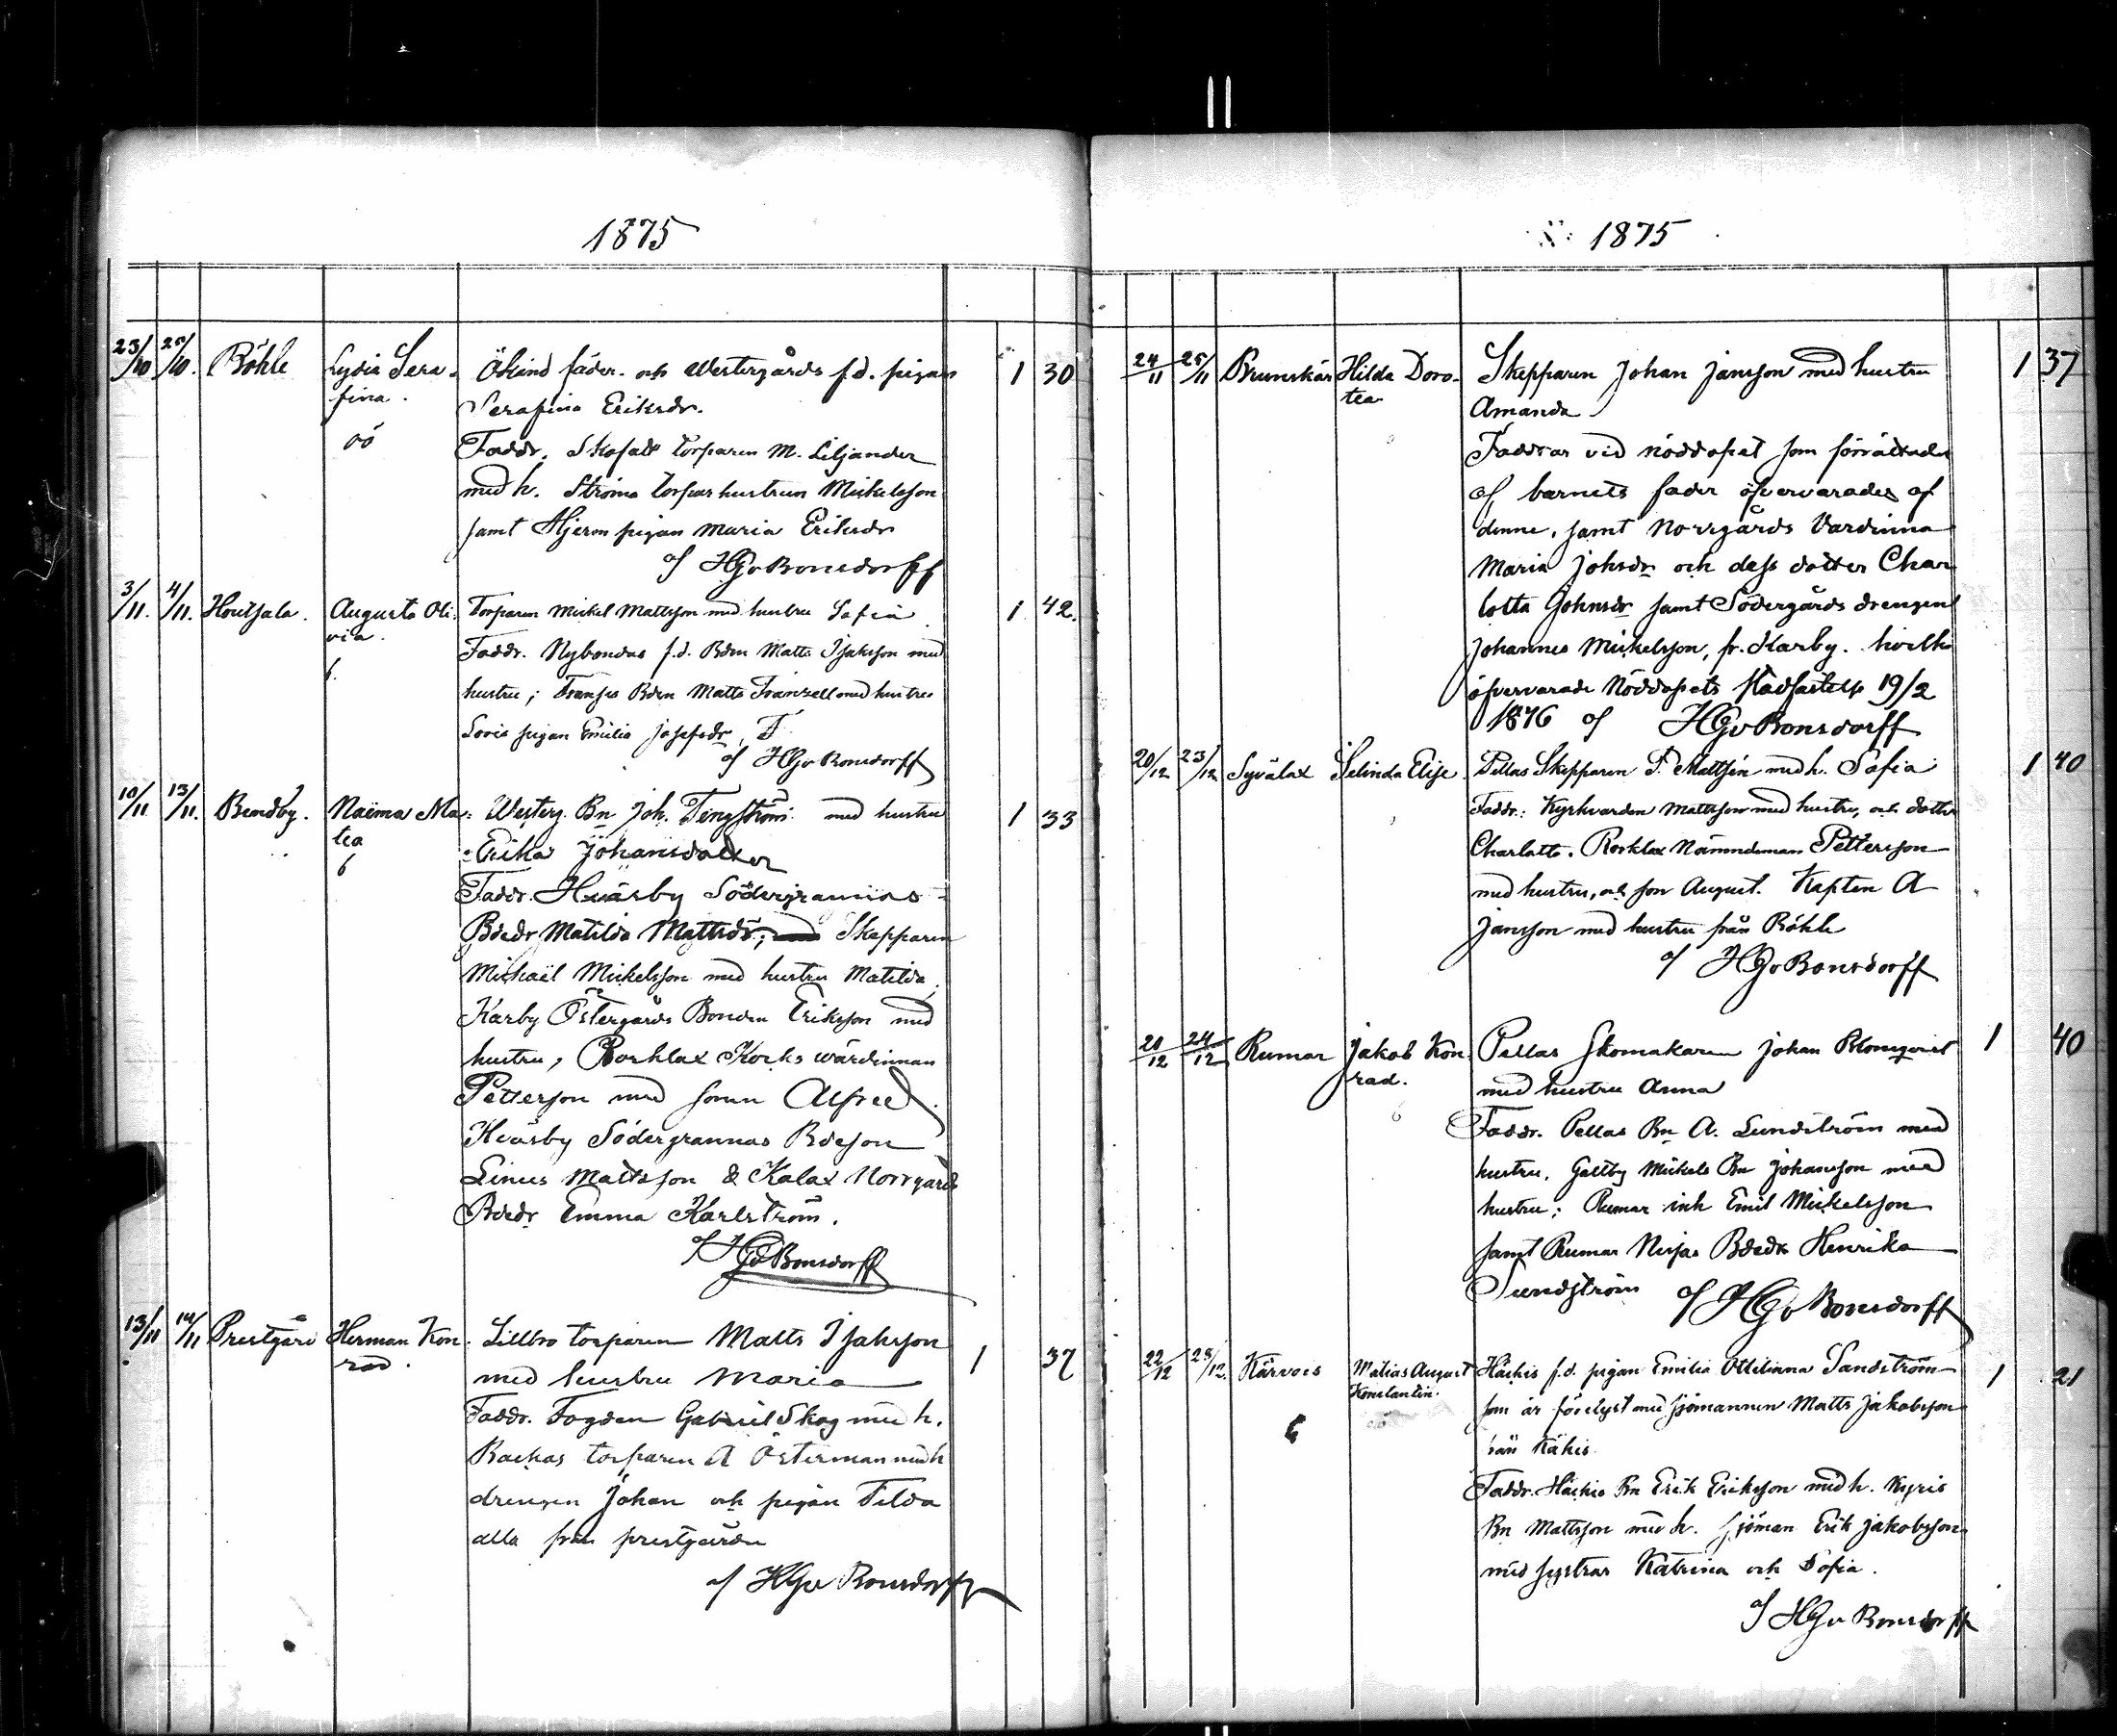 1875
23/10 25/10. Böhle Lydia Sera- Okänd fader och Westergårds f.d. pigan 1 30
fina. Serafina Eriksdr.
oä Faddr. torparen M. Liljander
med h. Ströms torparhustrun Mickelsson
samt Hjerm pigan Maria Eriksdr
af HGvBonsdorff
3/11. 4/11. Houtsala. Augusta Oli- Torparen Mickel Mattsson med hustru Sofia 1 42.
via. Faddr. Nybondas f.d. Bden Matts Isaksson med
6. hustru; Bden Matts Franzell med hustru
Lovis pigan Emilia Josefsdr,
af HGvBonsdorff
10/11 13/11. Bendby. Naëma Ma- Westerg. Bn Joh. Tengström med hustru 1 33
tea Erika Johansdotter
6 Faddr. Hväsby Södergrannas
Bdedr Matilda Mattsdr; Skepparen
Mickaël Mickelsson med hustru Matilda,
Karby Östergårds Bonden Eriksson med
hustru, Rocklax Korks wärdinnan
Petterson med sonen Alfred.
Hväsby Södergrannas Bdeson
Linus Mattsson & Kalax Norrgårds
Bdedr Emma Karlström.
af HGvBonsdorff
13/11 14/11 Prestgård Herman Kon- Lillbro torparen Matts Isaksson 1 37
rad. med hustru Maria
Faddr. Fogden Gabriel Skog med h.
Backas torparen A Österman med h
drengen Johan och pigan Tilda
alla från prestgården
af HGv Bonsdorff
1875
24/11 25/11 Brunskär Hilda Doro- Skepparen Johan Jansson med hustru 1 37
tea Amanda
Faddrar vid nöddopet som förrättades
af barnets fader öfvervarades af
denne, samt Norrgårds Värdinna
Maria Johsdr och dess dotter Char
lotta Johnsdr samt Södergårds drengen
Johannes Mickelsson, fr. Karby. hvilka
öfvervarade Nöddopets stadfästelse 19/2
1876 af HGvBonsdorff
20/12 23/12 Syvälax Selinda Elise Pellas Skepparen P. Mattsén med h. Sofia 1 40
Faddr.: Kyrkvärden Mattsson med hustru, och dotter
Charlotta. Rocklax Nämndeman Pettersson
med hustru, och son August. Kapten A
Jansson med hustru från Böhle
af HGvBonsdorff
20/12 24/12 Rumar Jakob Kon Pellas Skomakaren Johan Blomqvist 1 40
rad. med hustru Anna
6 Faddr. Pellas Bn A. Lundström med
hustru, Galtby Mickels Bn Johansson med
hustru; Rumar inh Emil Mickelsson
samt Rumar Nisjas Bdedr Henrika
Sundström af HGvBonsdorff
22/12 28/12. Kärvois Matias August Häckis f.d. pigan Emilia Ottiliana Sandström 1 21
Konstantin. som är förelyst med sjömannen Matts Jakobsson
6 från Käkis.
Faddr. Häckis Bn Erik Eriksson med h. Kyris
Bn Mattsson med h. Sjöman Erik Jakobsson
med systrar Katrina och Sofia.
af HGv Bonsdorff